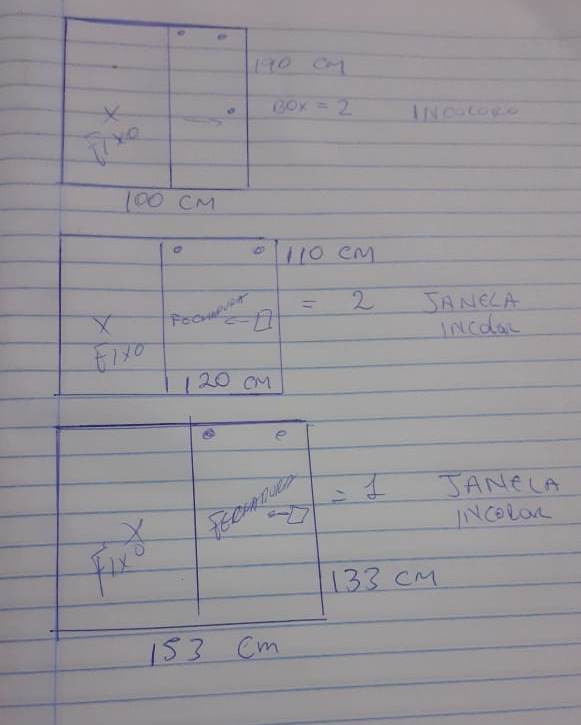 190 CM
BOX = 2 INCOLORO
X
FIXO
100 CM
110 CM
FECHADURA = 2 JANELA
INCOLOR
X
FIXO
120 CM
FECHADURA = 1 JANELA
INCOLOR
X
FIXO
133 CM
153 Cm